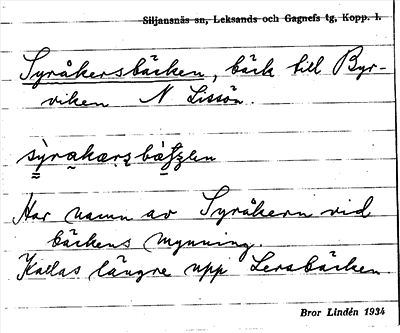 Siljansnäs sn, Leksands och Gagnefs tg, Kopp. l.
Syråkersbäcken, bäck till Byr-
viken N Lissön.
Har namn av Syråkern vid
bäckens mynning.
Kallas längre upp Lersbäcken
Bror Lindén 1934